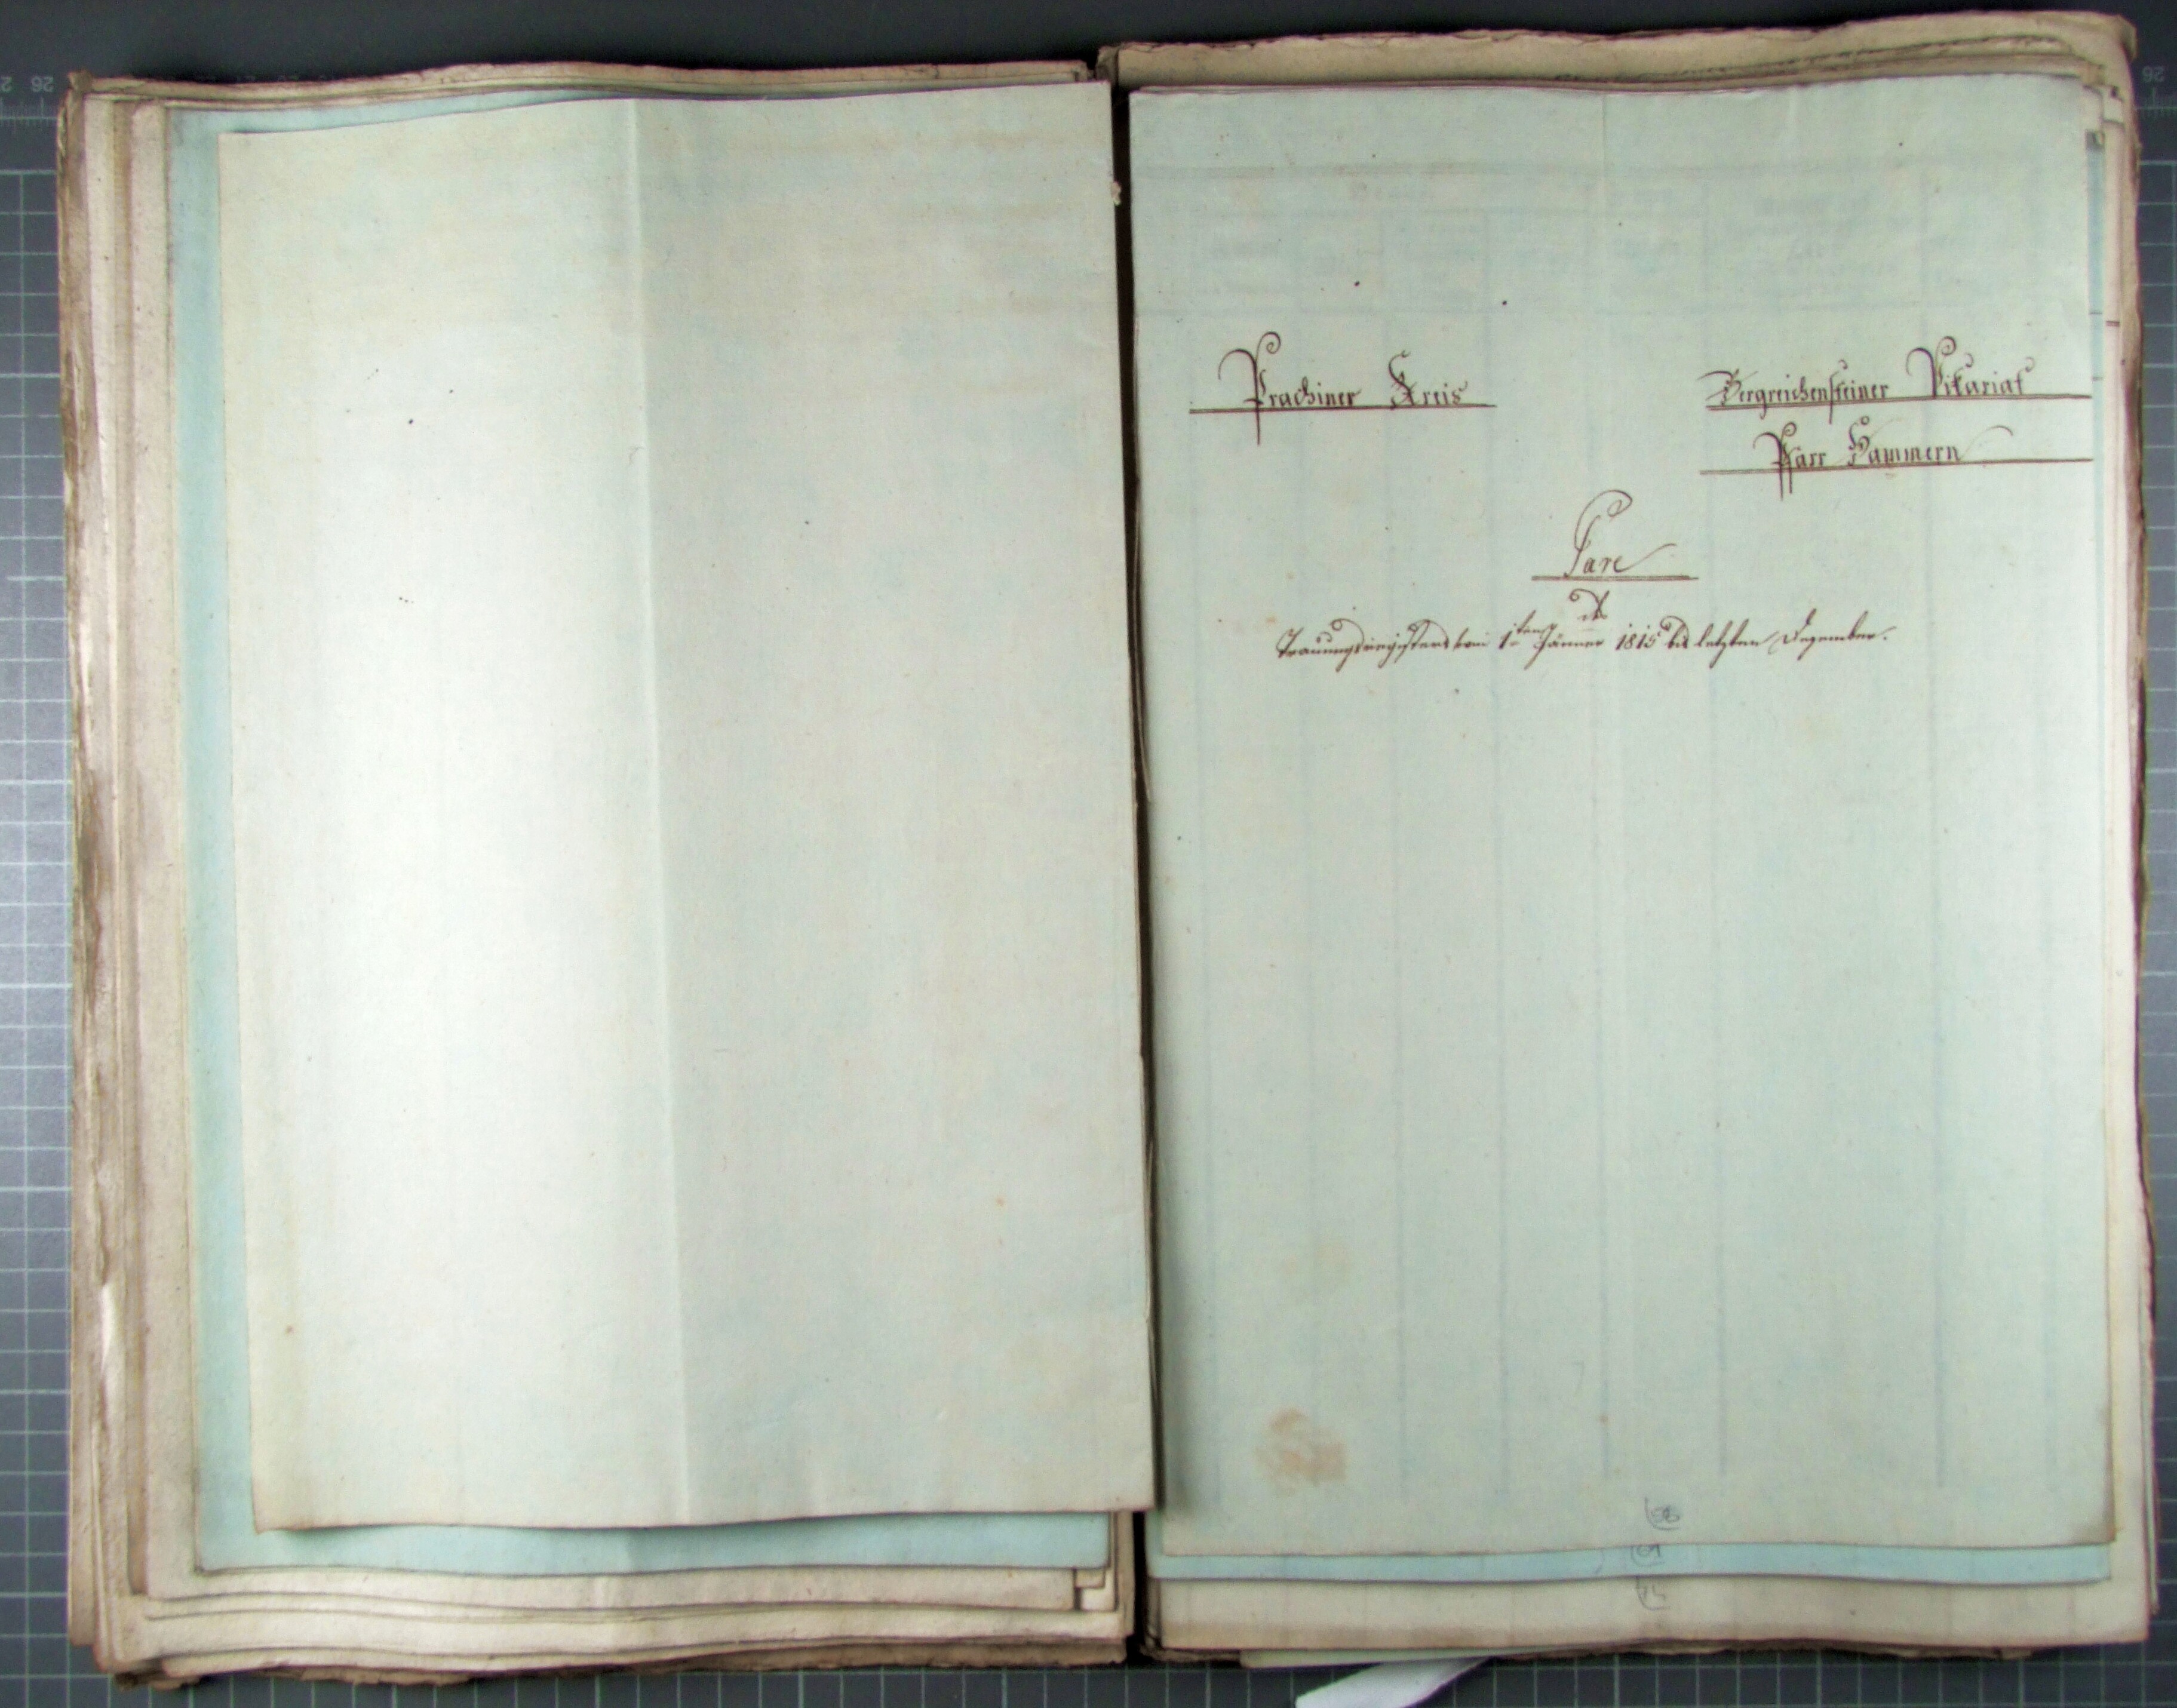 Prachiner Kreis
Bergreichensteiner Vikariat
Pfarr Hammern
Pare
des
Trauungsregisters vom 1ten Jänner 1815 bis letzten Dezember.